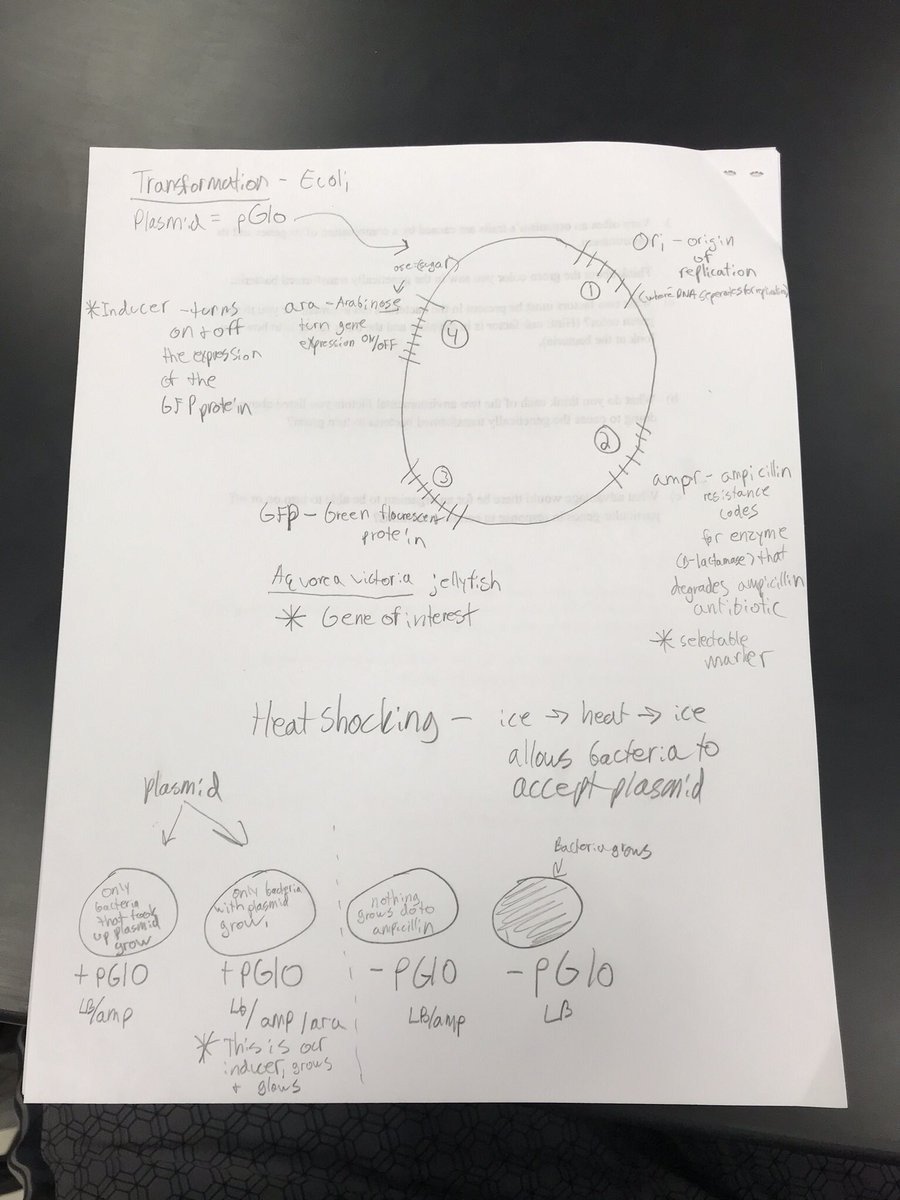 Transformation - Ecoli
Plasmid = pGlo
ose=sugar
Ori - origin
of
replication
(where DNA seperates for replication)
①
*Inducer - turns
on + off
the expression
of the
GFP protein
ara - Arabinose
turn gene
expression ON/OFF
④
②
ampr - ampicillin
resistance
codes
for enzyme
(B-lactamase) that
degrades ampicillin
antibiotic
* selectable
marker
③
GFP - Green flourescent
protein
Aequorea victoria jellyfish
* Gene of interest
Heatshocking - ice → heat → ice
allows bacteria to
accept plasmid
plasmid
Bacteria grows
only
bacteria
that took
up plasmid
grow
+pGlO
LB/amp
only bacteria
with plasmid
grow
+pGlO
Lb/amp/ara
* This is our
inducer, grows
+ glows
nothing
grows do to
ampicillin
-pGlO
LB/amp
-pGlo
LB